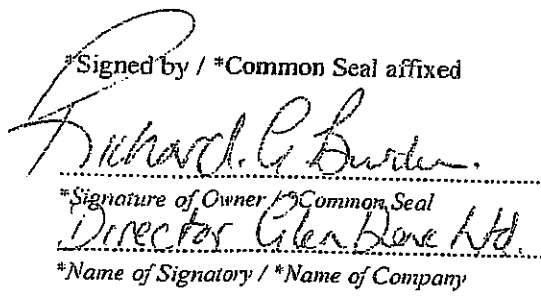 *Signed by / *Common Seal affixed
Richard. G Burden.
*Signature of Owner / *Common Seal
Director Glen Dene Ltd.
*Name of Signatory / *Name of Company